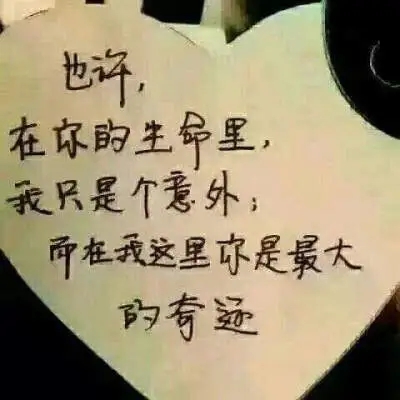 也许,
在你的生命里,
我只是个意外;
而在我这里你是最大
的奇迹